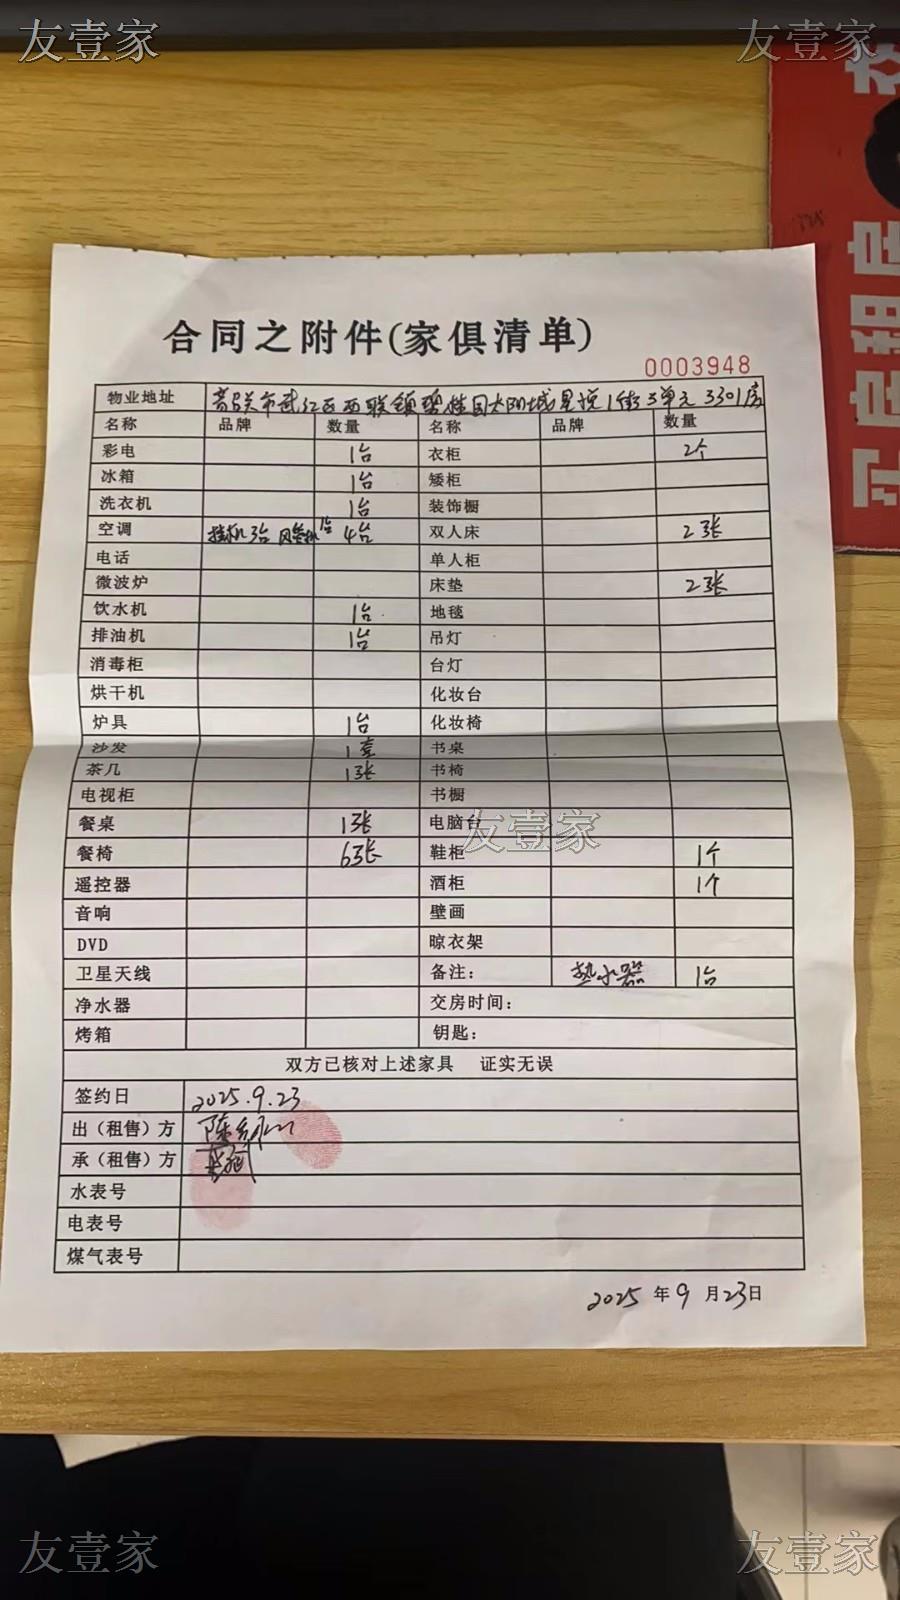 友壹家 友壹家
合同之附件(家俱清单)
0003948
物业地址 韶关市武江区西联镇碧桂园太阳城星悦1街3单元3301房
名称 品牌 数量 名称 品牌 数量
彩电 1台 衣柜 2个
冰箱 1台 矮柜
洗衣机 1台 装饰橱
空调 挂机3台 风管机1台 4台 双人床 2张
电话 单人柜
微波炉 床垫 2张
饮水机 1台 地毯
排油机 1台 吊灯
消毒柜 台灯
烘干机 化妆台
炉具 1台 化妆椅
沙发 1套 书桌
茶几 1张 书椅
电视柜 书橱
餐桌 1张 电脑台
友壹家
餐椅 6张 鞋柜 1个
遥控器 酒柜 1个
音响 壁画
DVD 晾衣架
卫星天线 备注: 热水器 1台
净水器 交房时间:
烤箱 钥匙:
双方已核对上述家具 证实无误
签约日 2025.9.23
出(租售)方 陈
承(租售)方
水表号
电表号
煤气表号
2025年9月23日
友壹家 友壹家